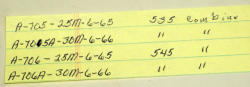 A-705-25M-6-65 535 Combine
A-705A-30M-6-66 " "
A-706-25M-6-65 545 "
A-706A-30M-6-66 " "